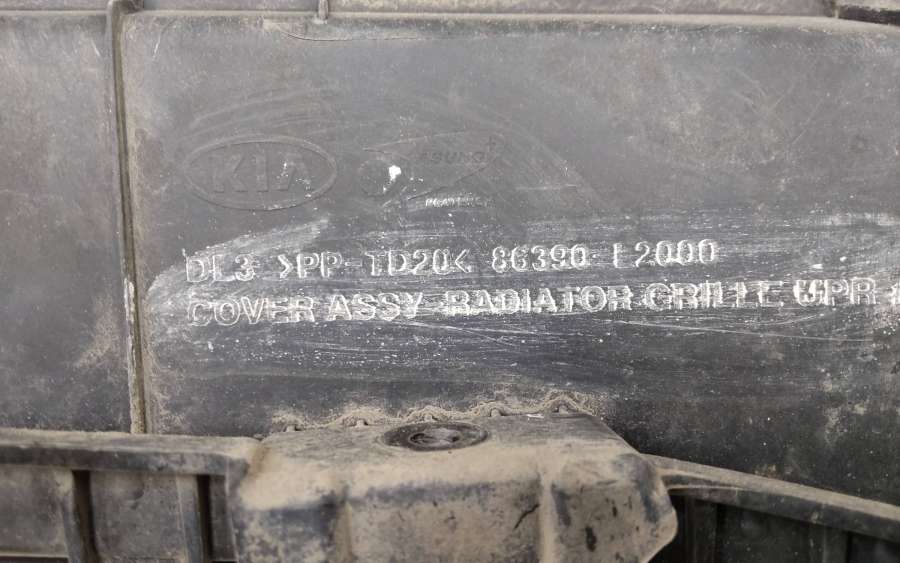 KIA
DL3 >PP-TD20< 86390-L2000
COVER ASSY-RADIATOR GRILLE UPR